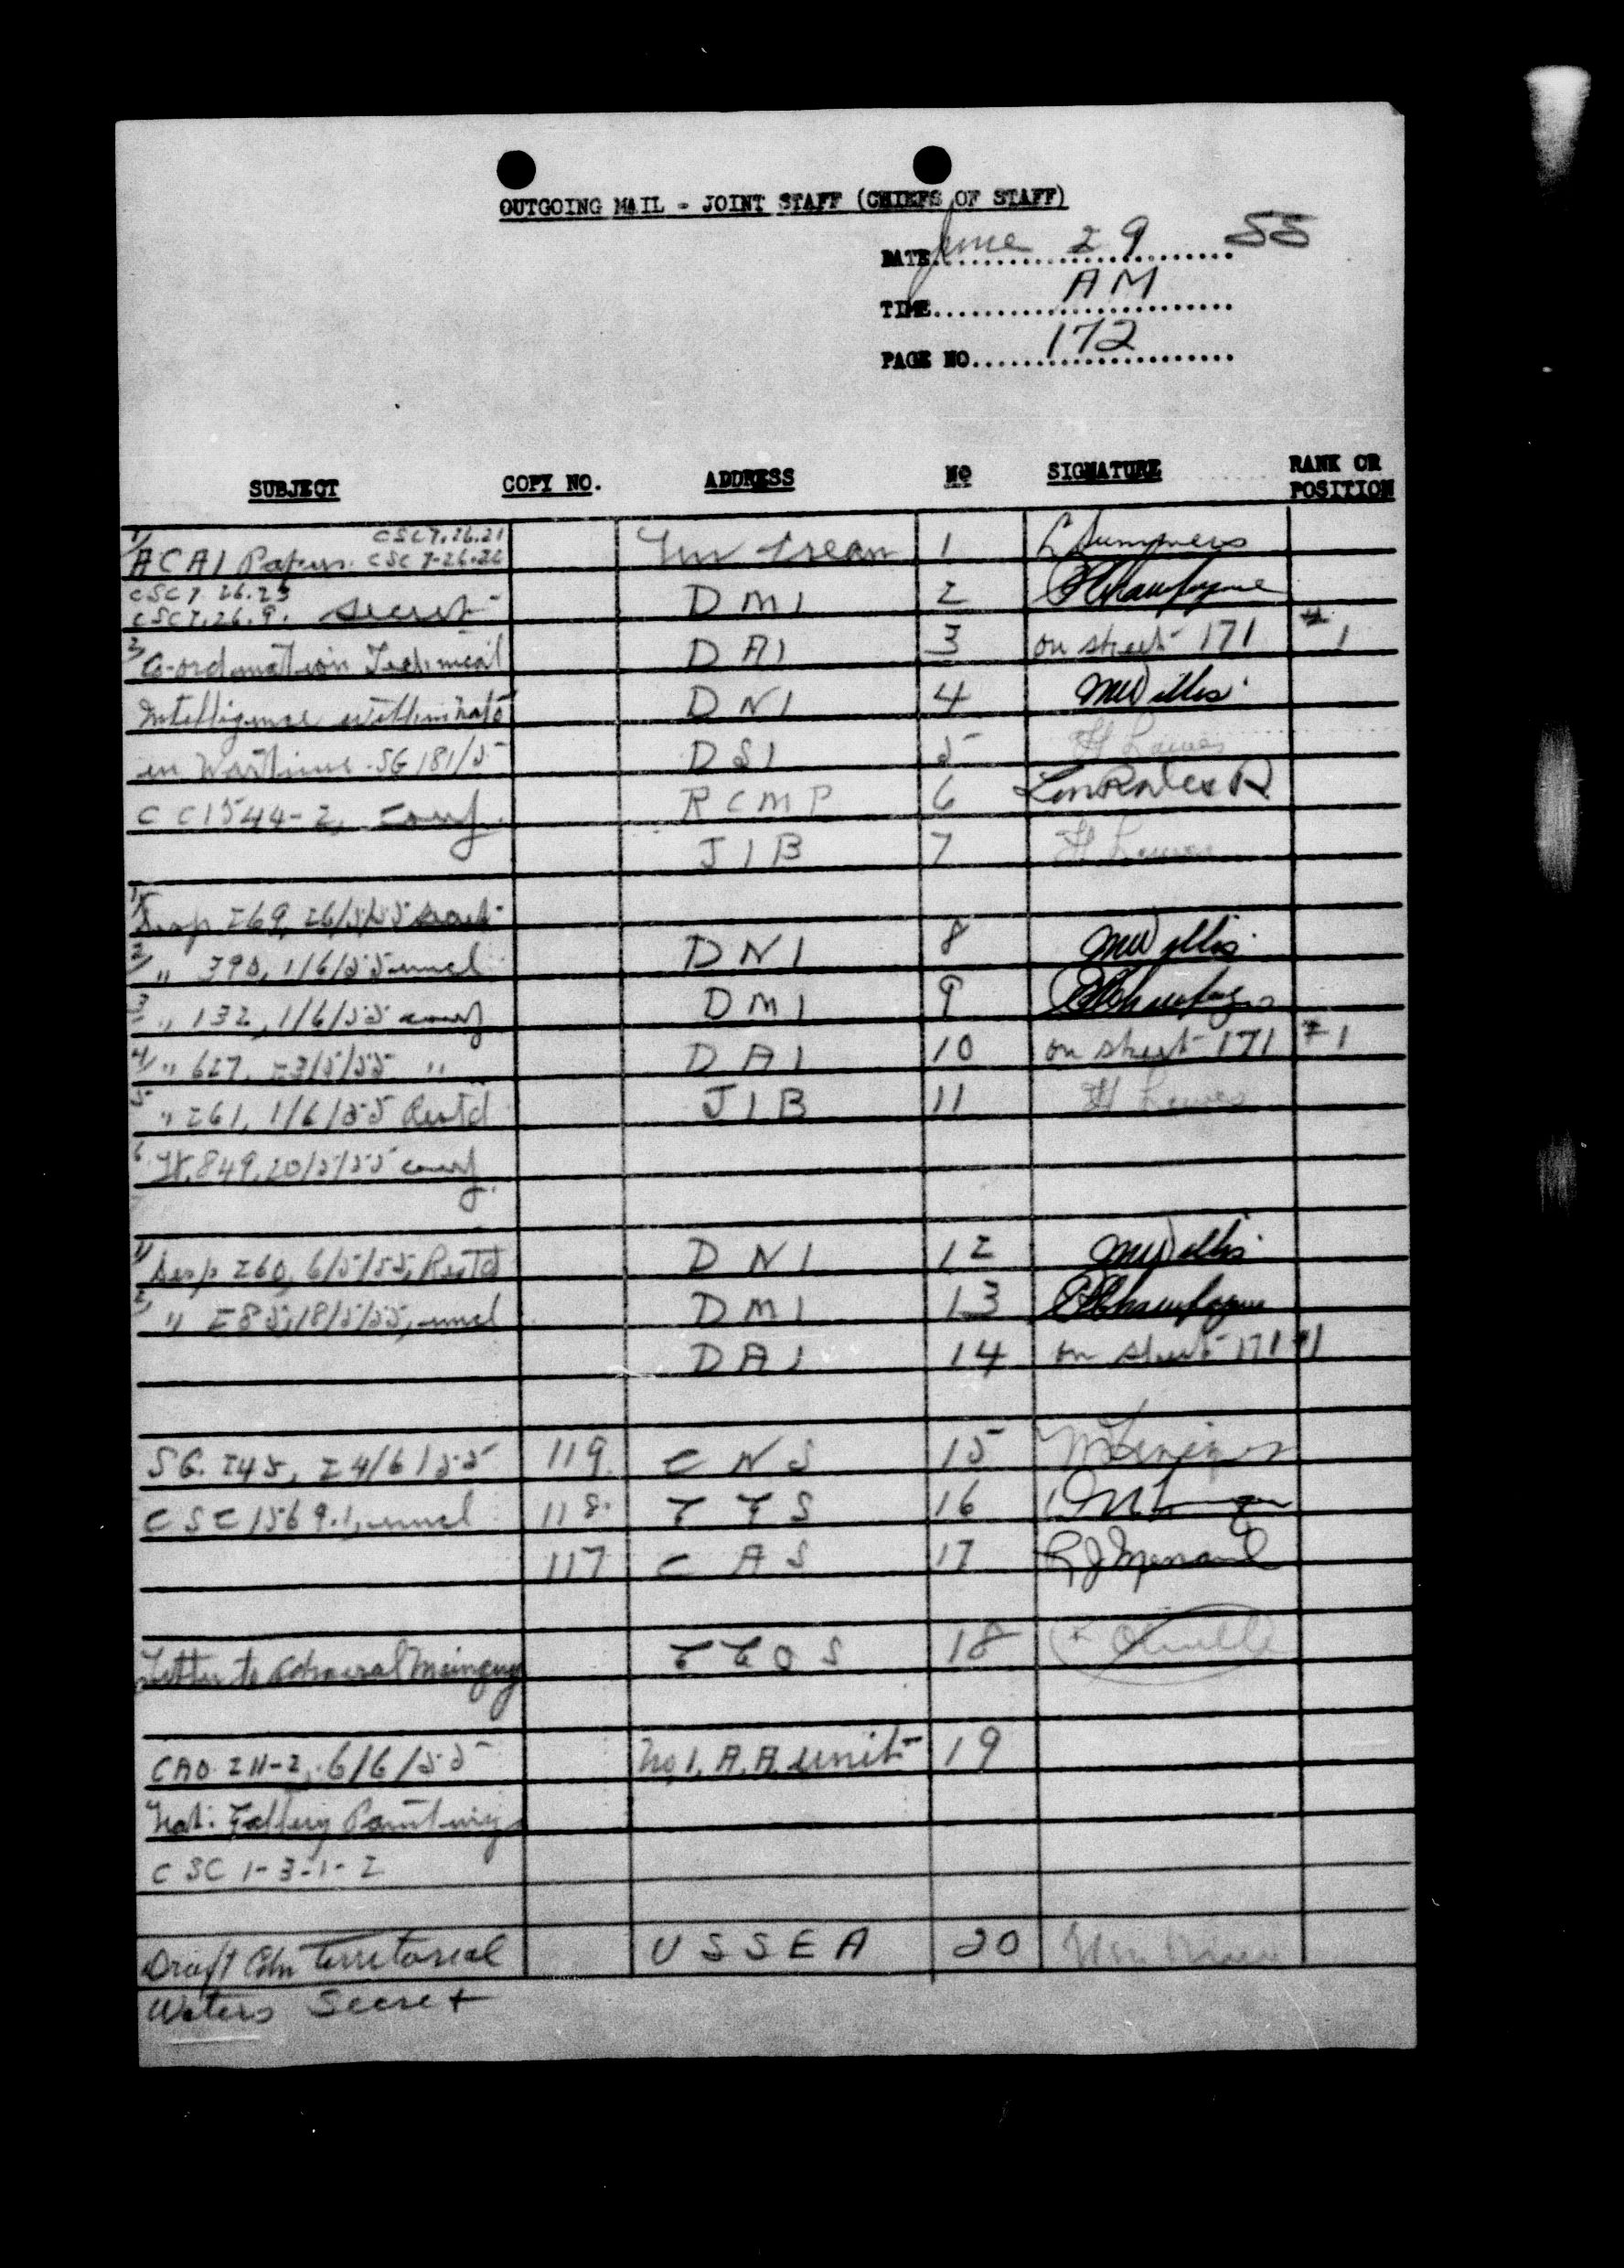 OUTGOING MAIL - JOINT STAFF (CHIEFS OF STAFF)
DATE June 29 55
TIME AM
PAGE NO 172
SUBJECT COPY NO. ADDRESS No SIGNATURE RANK OR POSITION
1/ CSC 7.26.21
ACAI Papers. CSC 7-26-26 1 Summers
CSC 7 26.23
CSC 7.26.9. secret DMI 2
3/ Co-ordination Technical DAI 3 on sheet 171 #1
Intelligence within Nato DNI 4 MWillis
in Wartime SG 181/55 DSI 5
CC1544-2, conf. RCMP 6
JIB 7
1/ Desp 269, 26/5/55 secret
2/ " 390, 1/6/55 uncl DNI 8 MWillis
3/ " 132, 1/6/55 conf DMI 9
4/ " 627, 23/5/55 " DAI 10 on sheet 171 #1
5 " 261, 1/6/55 Restd JIB 11
6 849, 20/5/55 conf.
1/ Desp 260, 6/5/55, Restd DNI 12 MWillis
2/ " 285, 18/5/55, uncl DMI 13
DAI 14 on sheet 171 #1
SG. 245, 24/6/55 119 CNS 15
CSC 1569.1, uncl 118 CGS 16
117 CAS 17
Letter to Admiral Mainguy CCOS 18
CAO 211-2, 6/6/55 No, 1, A.A. unit 19
Nat: Gallery Paintings
CSC 1-3-1-2
Draft Cdn Territorial USSEA 20
Waters Secret